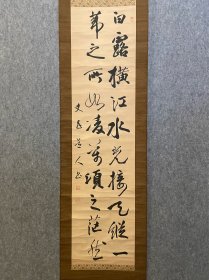 白露横江水光接天縦一
葦之所如凌萬頃之茫然